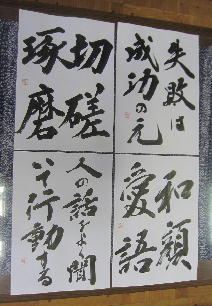 失敗は
成功の元
切磋
琢磨
和顔
愛語
人の話をよく聞
いて行動する